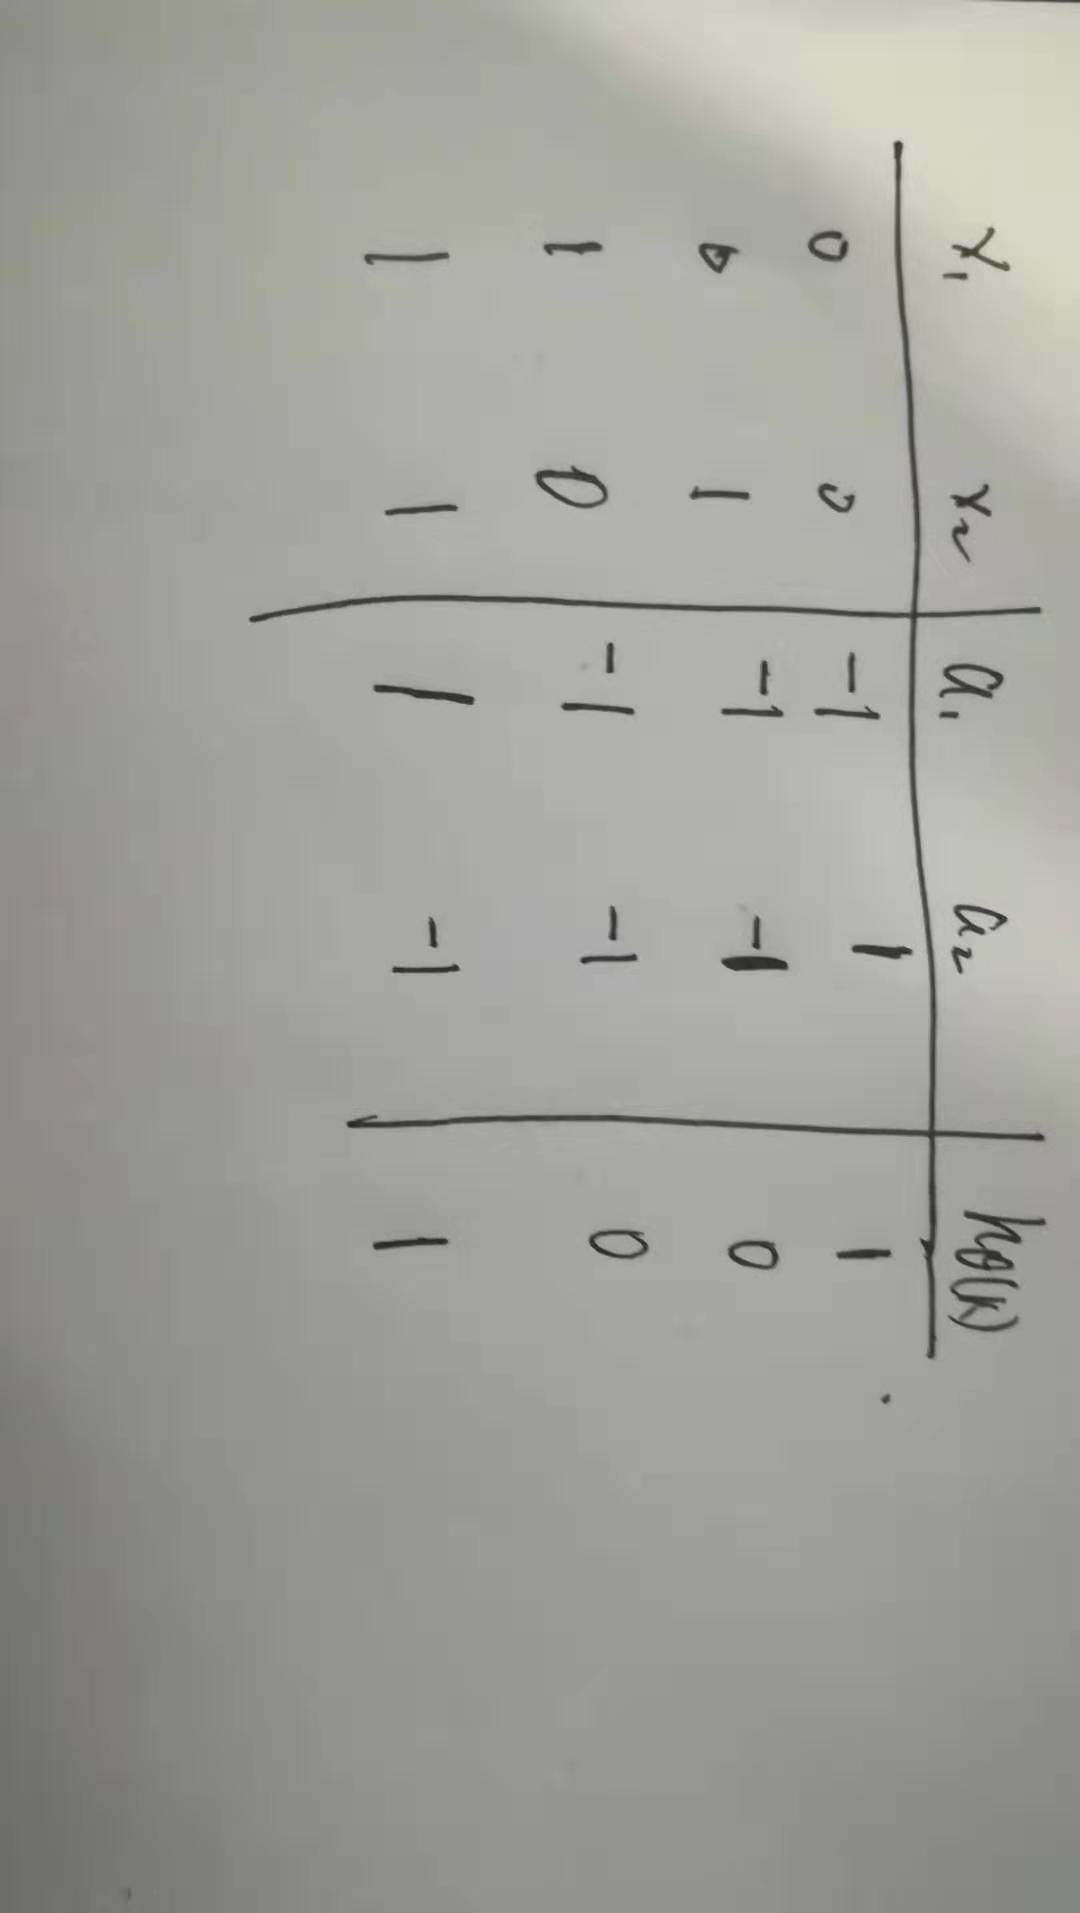 x₁ x₂ a₁ a₂ hθ(x)
0 0 -1 1 1
0 1 -1 -1 0
1 0 -1 -1 0
1 1 1 -1 1